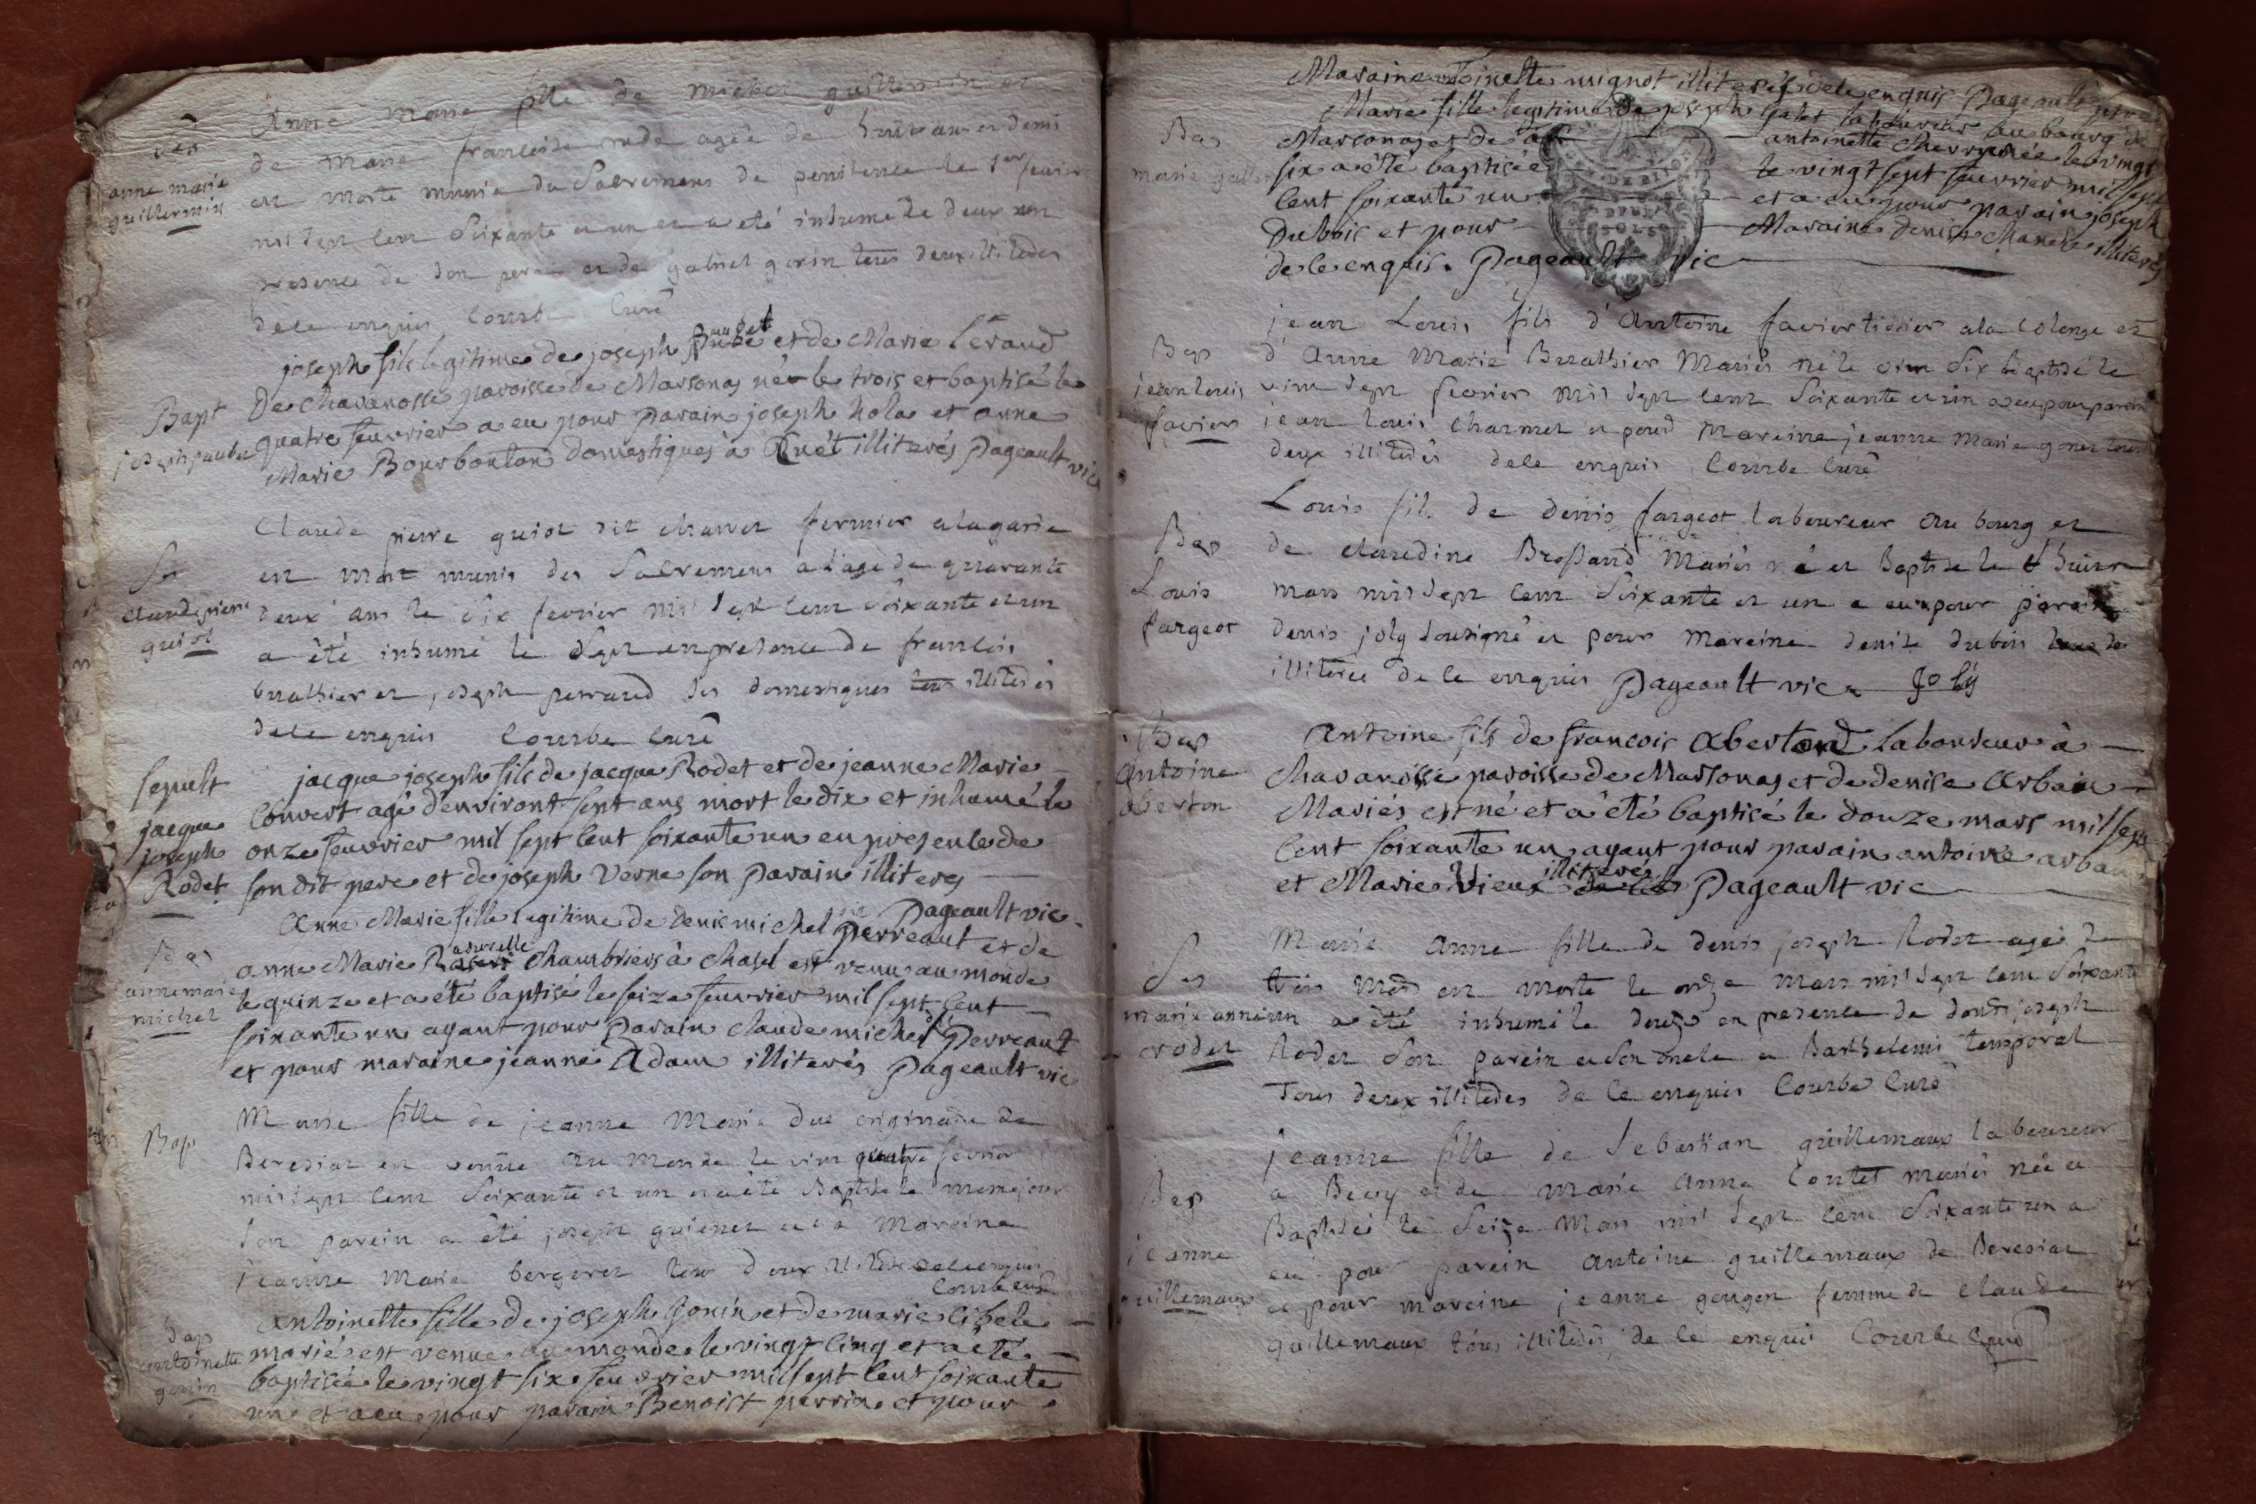 Sep
anne marie
guillermin
Anne Marie fille de michel guillermin et
de Marie françoise rude agée de huit ans et demi
est morte munie du Sacrement de penitence le 1er fevrier
mil sept cent Soixante et un et a eté inhumé le deux en
presence de son perein et de gabriel gonin tous deux illiterés
de ce enquis Courbe Curé
Bapt
joseph paudet
joseph fils legitime de joseph paudet et de Marie Leraud
De chavanosse paroisse de Marsonas né le trois et baptisé le
quatre feuvrier a eu pour parain joseph hola et anne
Marie Bourbonton domestiques à Cuét illiterés Pageault vic
Sep
claude pierre
guiot
Claude pierre guiot dit charvet fermier a la garde
est mort munis des Sacremens a l'age de quarante
deux ans le Six fevrier mil sept cent soixante et un
a été inhumé le Sept en presence de francois
brathier et joseph perraud ses domestiques illiterés
de ce enquis Courbe Curé
sepult
jacque
joseph
Rodet
jacque joseph fils de jacque Rodet et de jeanne Marie
Convert agé d'environt sept ans mort le dix et inhumé le
onze feuvrier mil sept cent soixante un en presence de
son dit pere et de joseph Verne son parain illiteres
Pageault vic
Bap
anne marie
michel
Anne Marie fille legitime de denis michel dit Perreaut et de
anne Marie chambriers à Chasel est venu au monde
le quinze et a été baptisé le seize feuvrier mil sept cent
soixante un ayant pour Parain claude michel dit Perreaut
et pour maraine jeanne Adam illiterés Pageault vic
Bap
Marie fille de jeanne Marie Duc originaire de
Beresiat est venüe au monde le vint quatre fevrier
mil sept cent Soixante et un et a été Baptisé le meme jour
Son parein a été joseph guienet et la Mareine
jeanne Marie bergeret tous deux illiterés de ce enquis
Courbe curé
Bap
antoinette
gonin
Antoinette fille de joseph Gonin et de marie Cibele
mariés est venue au monde le vingt cinq et a eté
baptisée le vingt six feuvrier mil sept cent soixante
un et a eu pour parain Benoist perrin et pour
Maraine antoinette mignot illiterés de ce enquis Pageault
Bap
marie gallet
Marie fille legitime de joseph galet laboureur au bourg de
Marsonas et de antoinette née le vingt
six a été baptisée le vingt sept feuvrier mil sept
cent soixante un et a eu pour parain joseph
Dubois et pour Maraine denise illiterés
de ce enquis. Pageault vic
Bap
jean louis
favier
jean Louis fils d'Antoine favier tissier a la Colonge et
d'Anne Marie Brathier Mariés né le vint Six baptisé le
vint Sept fevrier mil sept cent Soixante et un a eu pour parein
jean louis Charnet et pour Mareine jeanne Marie gonet tous
deux illiterés de ce enquis Courbe Curé
Bap
Louis
fargeot
Louis fils de denis fargeot laboureur au bourg et
de claudine Brossard Mariés né et Baptisé le huit
mars mil sept cent Soixante et un a eu pour parein
denis joly Sousigné et pour Mareine denise dubois
illiterée de ce enquis Pageault vic Joly
Bap
Antoine
aberton
Antoine fils de francois Aberton Laboureur à
chavanosse paroisse de Marsonas et de denise Arban
Mariés est né et a été baptisé le douze mars mil sept
cent soixante un ayant pour parain antoine arban
et Marie Vieux illiterés Pageault vic
Sep
marie anne
rodet
Marie Anne fille de denis joseph Rodet agé de
trois mois est morte le onze Mars mil sept cent Soixante
un a été inhumé le douze en presence de denis joseph
Rodet Son parein et Son oncle et Barthelemi temporal
Tous deux illiterés de ce enquis Courbe Curé
Bap
jeanne
guillemaux
jeanne fille de Sebastian guillemaux laboureur
a Becy et de Marie Anne Contet mariés née et
Baptisé le Seize Mars mil sept cent Soixante un a
eu pour parein Antoine guillemaux de Beresiat
et pour mareine jeanne gougon femme de Claude
guillemaux tous illiterés de ce enquis Courbe Curé